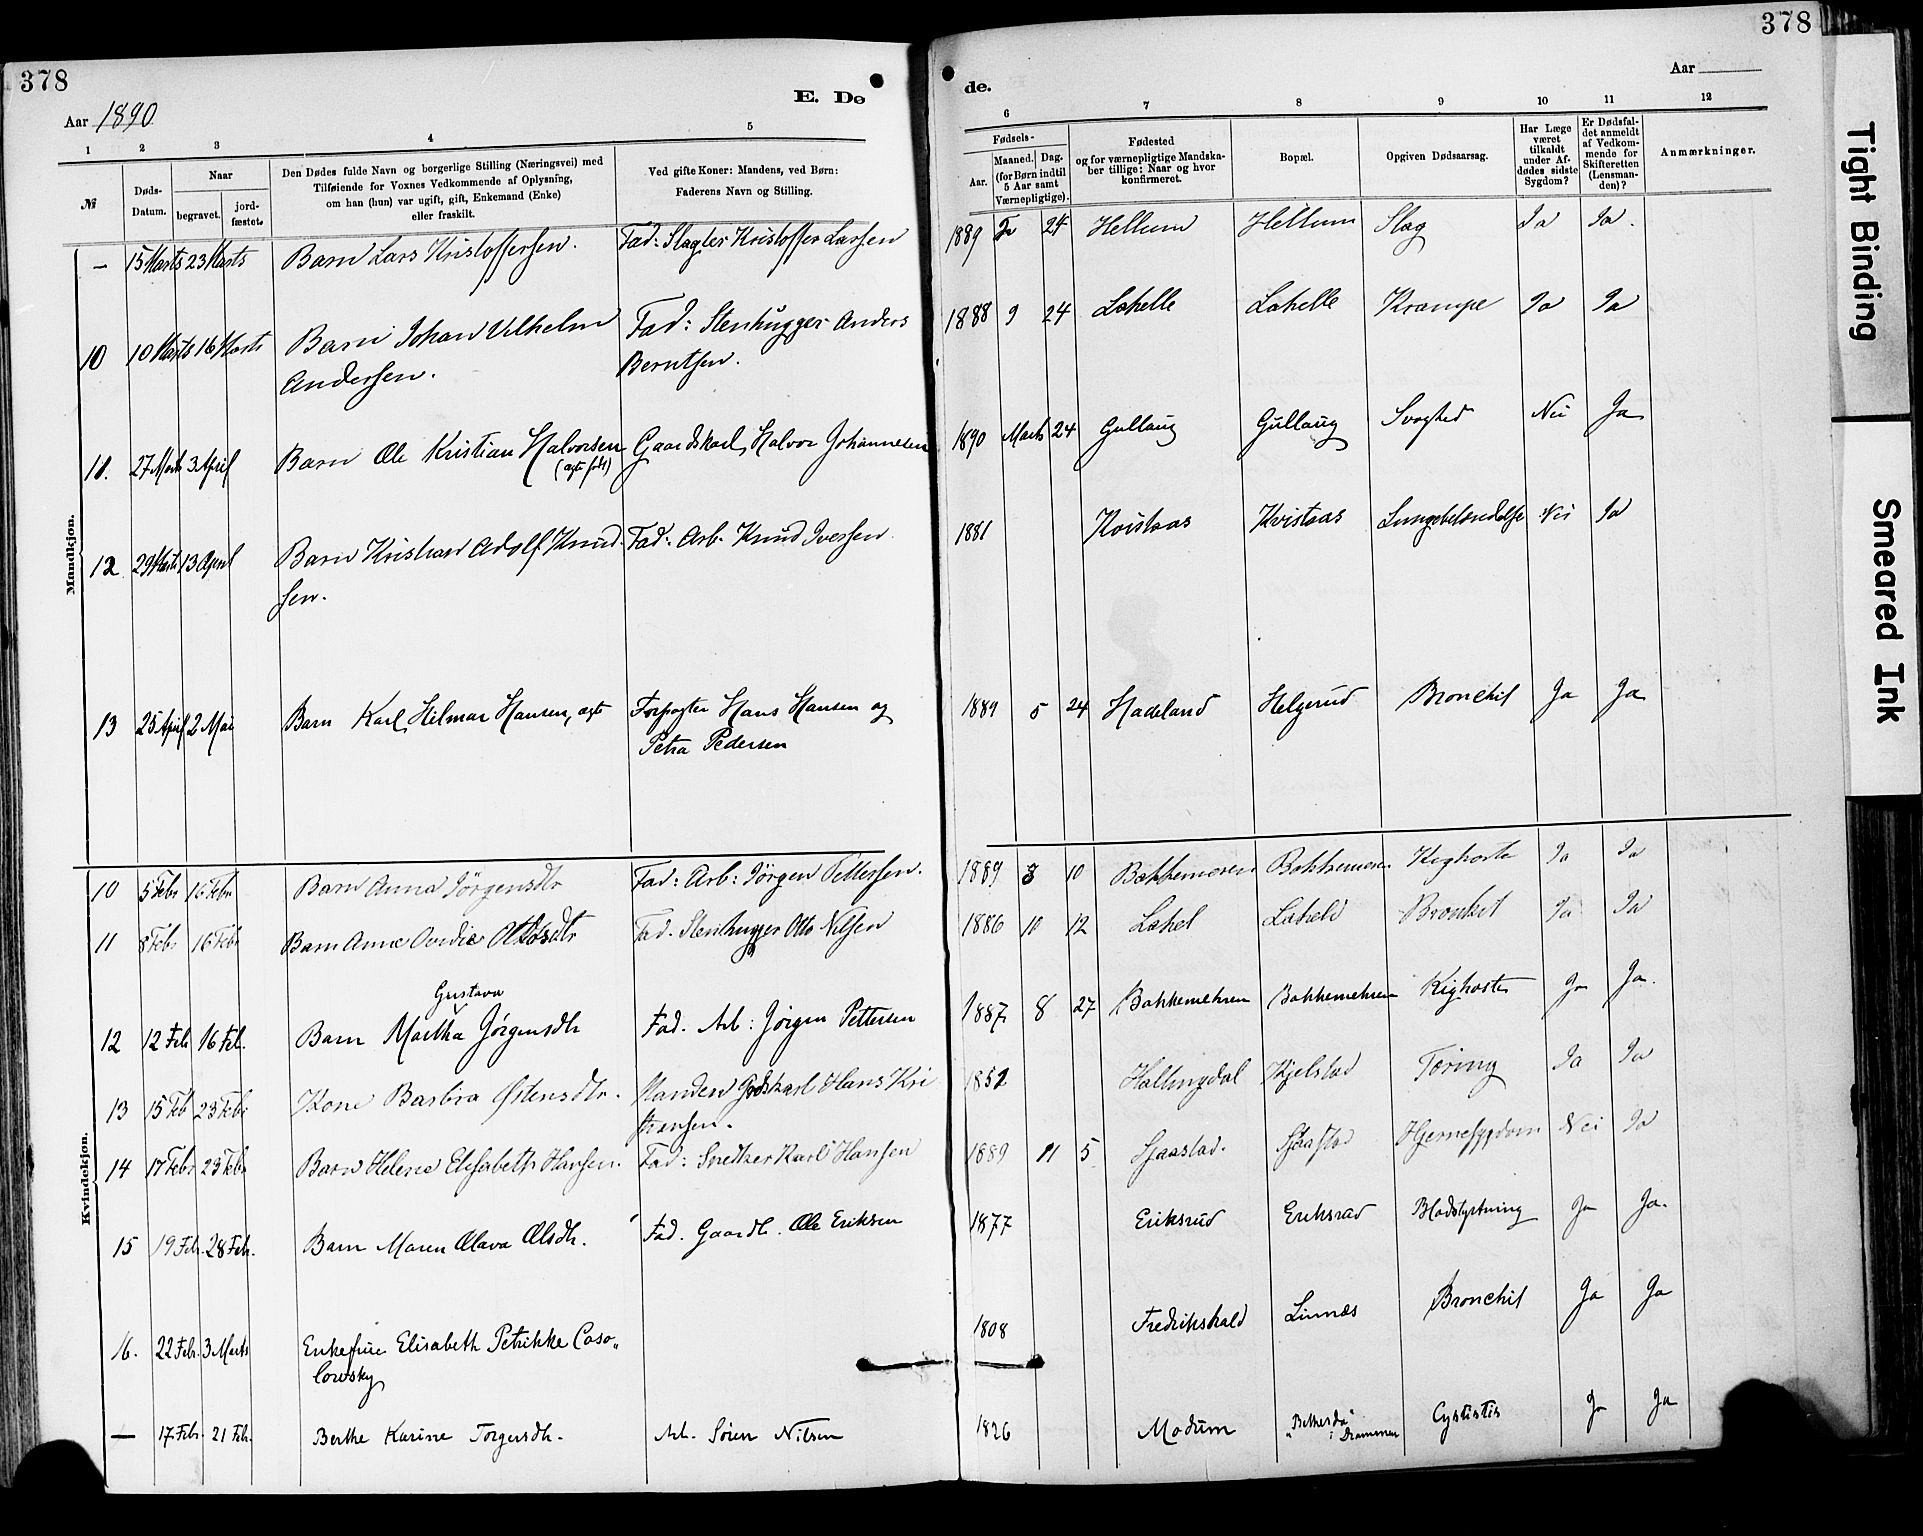 378
Aar 1890
E. De
1 2 3 4 5
№
Døds-
Datum.
Naar
begravet.
jord-
fæstet.
Den Dødes fulde Navn og borgerlige Stilling (Næringsvei) med
Tilføiende for Voxnes Vedkommende af Oplysning,
om han (hun) var ugift, gift, Enkemand (Enke)
eller fraskilt.
Ved gifte Koner: Mandens, ved Børn:
Faderens Navn og Stilling.
Mandkjøn.
— 15 Marts 23 Marts Barn Lars Kristoffersen. Fad: Slagter Kristoffer Larsen
10 10 Marts 16 Marts Barn Johan Vilhelm Fad: Stenhugger Anders
Andersen. Berntsen.
11. 27 Marts 3 April Barn Ole Kristian Halvorsen Gaardskarl Halvor Johannesen
(ægte født)
12 29 Marts 13 April Barn Kristian Adolf Knud- Fad: Arb. Knud Iversen
sen.
13 25 April 2 Mai Barn Karl Hilmar Hansen, ægte Forpagter Hans Hansen og
Petra Pedersen
Kvindekjøn.
10 5 Febr 16 Febr Barn Anna Jörgensdtr Fad: Arb: Jörgen Pettersen.
11 8 Febr 16 Febr Barn Anne Ovidie Ottosdtr Fad. Stenhugger Otto Nilsen
Gustava
12 12 Feb 16 Feb. Barn Martha Jörgensdtr Fad. Arb: Jörgen Pettersen
13 15 Feb 23 Febr Kone Barbra Østensdtr. Manden Gdskarl Hans Kri
stiansen.
14 17 Febr 23 Febr Barn Helene Elisabeth Hansen. Fad: Snedker Karl Hansen
15 19 Feb. 28 Feb. Barn Maren Olava Olsdtr. Fad. Gaardb. Ole Eriksen
16. 22 Feb. 3 Marts Enkefrue Elisabeth Petrikke Caso„
lowsky
— 17 Feb. 21 Feb. Berthe Karine Torgersdtr. Arb. Sören Nilsen
378
de.
Aar
6 7 8 9 10 11 12
Fødsels-
Aar.
Maaned. Dag.
(for Børn indtil
5 Aar samt
Værnepligtige).
Fødested
og for værnepligtige Mandska-
ber tillige: Naar og hvor
konfirmeret.
Bopæl.
Opgiven Dødsaarsag.
Har Læge
været
tilkaldt
under Af-
dødes sidste
Sygdom?
Er Dødsfal-
det anmeldt
af Vedkom-
mende for
Skifteretten
(Lensman-
den)?
Anmærkninger.
1889 24 Hellum Hellum Slag Ja Ja.
1888 9 24 Lahelle Lahelle Krampe Ja Ja
1890 Marts 24 Gullaug Gullaug Svaghed Nei Ja
1881 Kvistaas Kvistaas Lungebetændelse Nei Ja
1889 5 24 Hadeland Helgerud Bronchit Ja Ja
1889 3 10 Bakkemoren Bakkemoren Kighoste Ja Ja
1886 10 12 Lahel Lahell Bronkit Ja Ja
1887 8 27 Bakkemehren Bakkemehren Kighoste Ja Ja.
1852 Hallingdal Kjelstad Tæring Ja Ja
1889 11 5 Sjaastad. Sjaastad Hjernesygdom Nei Ja
1877 Eriksrud Eriksrud Blodstyrtning Ja Ja.
1808 Fredrikshald Linnæs Bronchit Ja Ja
1826 Modum „Bethesda" Cystistis Ja Ja
i Drammen
Tight Binding
Smeared Ink